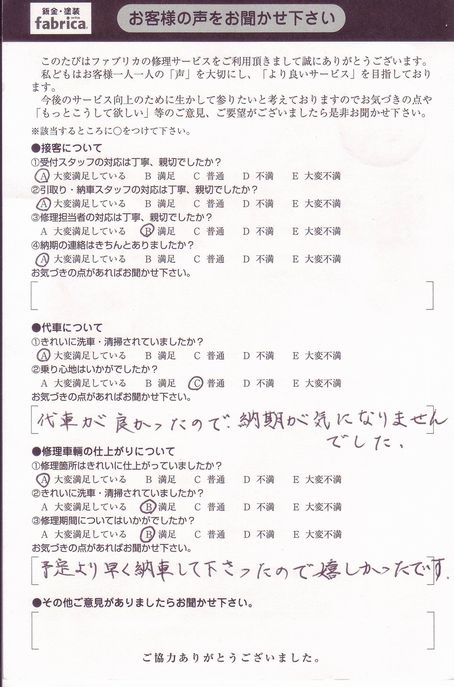 鈑金・塗装
fabrica.
お客様の声をお聞かせ下さい
このたびはファブリカの修理サービスをご利用頂きまして誠にありがとうございます。
私どもはお客様一人一人の「声」を大切にし、「より良いサービス」を目指しており
ます。
今後のサービス向上のために生かして参りたいと考えておりますのでお気づきの点や
「もっとこうして欲しい」等のご意見、ご要望がございましたら是非お聞かせ下さい。
※該当するところに○をつけて下さい。
●接客について
①受付スタッフの対応は丁寧、親切でしたか?
A 大変満足している B 満足 C 普通 D 不満 E 大変不満
②引取り・納車スタッフの対応は丁寧、親切でしたか?
A 大変満足している B 満足 C 普通 D 不満 E 大変不満
③修理担当者の対応は丁寧、親切でしたか?
A 大変満足している B 満足 C 普通 D 不満 E 大変不満
④納期の連絡はきちんとありましたか?
A 大変満足している B 満足 C 普通 D 不満 E 大変不満
お気づきの点があればお聞かせ下さい。
●代車について
①きれいに洗車・清掃されていましたか?
A 大変満足している B 満足 C 普通 D 不満 E 大変不満
②乗り心地はいかがでしたか?
A 大変満足している B 満足 C 普通 D 不満 E 大変不満
お気づきの点があればお聞かせ下さい。
代車が良かったので、納期が気になりません
でした、
●修理車輌の仕上がりについて
①修理箇所はきれいに仕上がっていましたか?
A 大変満足している B 満足 C 普通 D 不満 E 大変不満
②きれいに洗車・清掃されていましたか?
A 大変満足している B 満足 C 普通 D 不満 E 大変不満
③修理期間についてはいかがでしたか?
A 大変満足している B 満足 C 普通 D 不満 E 大変不満
お気づきの点があればお聞かせ下さい。
予定より早く納車して下さったので嬉しかったです.
●その他ご意見がありましたらお聞かせ下さい。
ご協力ありがとうございました。